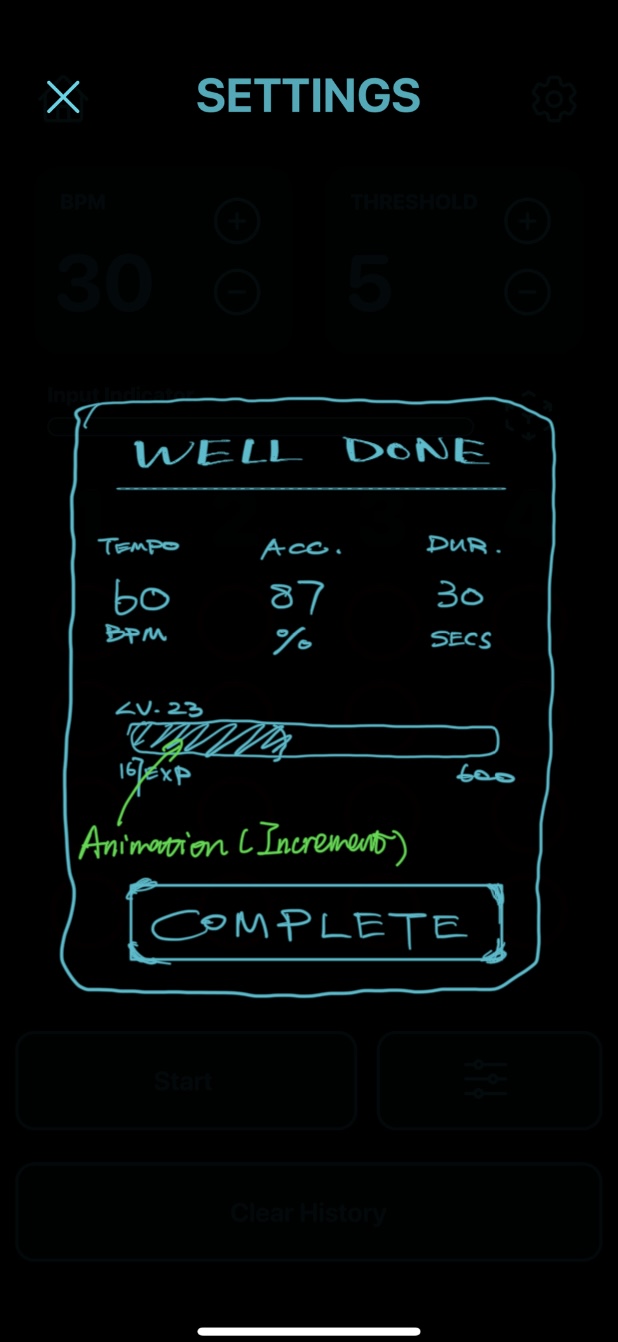 SETTINGS
BPM THRESHOLD
30 5
Input Indicator
WELL DONE
TEMPO ACC. DUR.
60 87 30
BPM % SECS
LV. 23
167 EXP 600
Animation (Increment)
COMPLETE
Start
Clear History